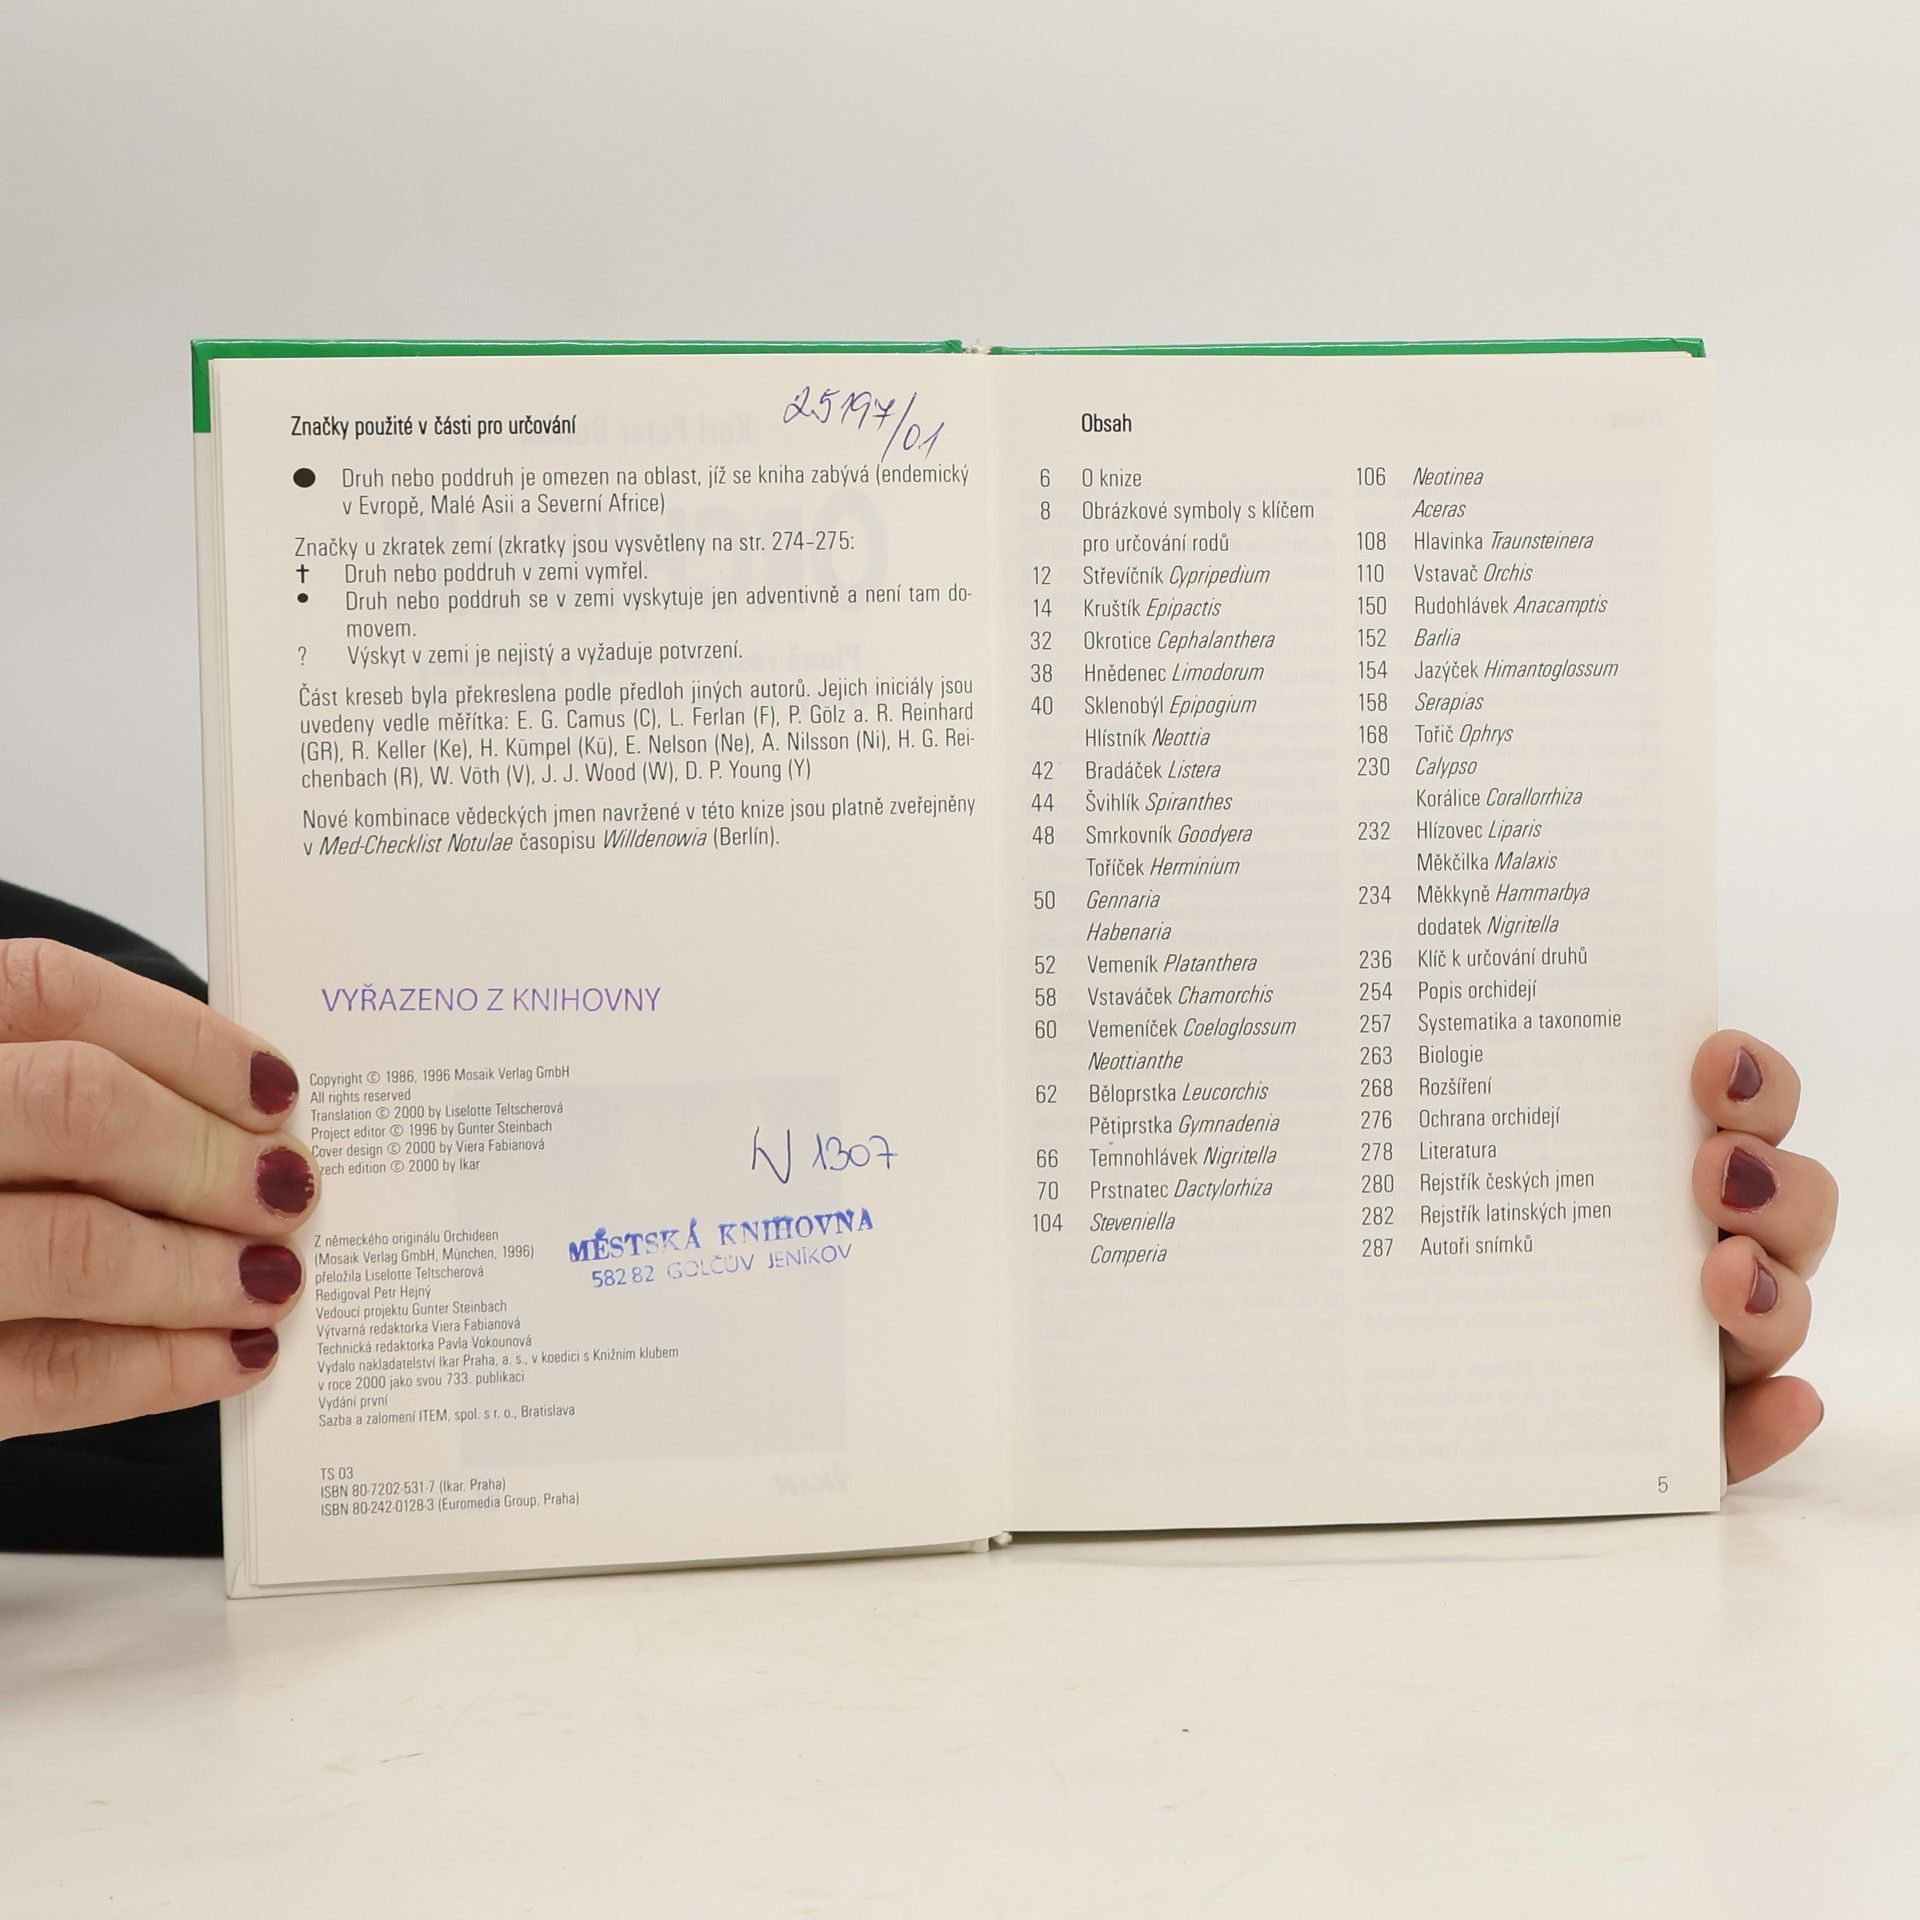 25197/01
Značky použité v části pro určování
● Druh nebo poddruh je omezen na oblast, jíž se kniha zabývá (endemický
v Evropě, Malé Asii a Severní Africe)
Značky u zkratek zemí (zkratky jsou vysvětleny na str. 274–275:
✝ Druh nebo poddruh v zemi vymřel.
• Druh nebo poddruh se v zemi vyskytuje jen adventivně a není tam do-
movem.
? Výskyt v zemi je nejistý a vyžaduje potvrzení.
Část kreseb byla překreslena podle předloh jiných autorů. Jejich iniciály jsou
uvedeny vedle měřítka: E. G. Camus (C), L. Ferlan (F), P. Gölz a. R. Reinhard
(GR), R. Keller (Ke), H. Kümpel (Kü), E. Nelson (Ne), A. Nilsson (Ni), H. G. Rei-
chenbach (R), W. Vöth (V), J. J. Wood (W), D. P. Young (Y)
Nové kombinace vědeckých jmen navržené v této knize jsou platně zveřejněny
v Med-Checklist Notulae časopisu Willdenowia (Berlín).
VYŘAZENO Z KNIHOVNY
Copyright © 1986, 1996 Mosaik Verlag GmbH
All rights reserved
Translation © 2000 by Liselotte Teltscherová
Project editor © 1996 by Gunter Steinbach
Cover design © 2000 by Viera Fabianová
zech edition © 2000 by Ikar
N 1307
MĚSTSKÁ KNIHOVNA
582 82 GOLČŮV JENÍKOV
Z německého originálu Orchideen
(Mosaik Verlag GmbH, München, 1996)
přeložila Liselotte Teltscherová
Redigoval Petr Hejný
Vedoucí projektu Gunter Steinbach
Výtvarná redaktorka Viera Fabianová
Technická redaktorka Pavla Vokounová
Vydalo nakladatelství Ikar Praha, a. s., v koedici s Knižním klubem
v roce 2000 jako svou 733. publikaci
Vydání první
Sazba a zalomení ITEM, spol. s r. o., Bratislava
TS 03
ISBN 80-7202-531-7 (Ikar. Praha)
ISBN 80-242-0128-3 (Euromedia Group. Praha)
Obsah
6 O knize
8 Obrázkové symboly s klíčem
pro určování rodů
12 Střevíčník Cypripedium
14 Kruštík Epipactis
32 Okrotice Cephalanthera
38 Hnědenec Limodorum
40 Sklenobýl Epipogium
Hlístník Neottia
42 Bradáček Listera
44 Švihlík Spiranthes
48 Smrkovník Goodyera
Toříček Herminium
50 Gennaria
Habenaria
52 Vemeník Platanthera
58 Vstaváček Chamorchis
60 Vemeníček Coeloglossum
Neottianthe
62 Běloprstka Leucorchis
Pětiprstka Gymnadenia
66 Temnohlávek Nigritella
70 Prstnatec Dactylorhiza
104 Steveniella
Comperia
106 Neotinea
Aceras
108 Hlavinka Traunsteinera
110 Vstavač Orchis
150 Rudohlávek Anacamptis
152 Barlia
154 Jazýček Himantoglossum
158 Serapias
168 Tořič Ophrys
230 Calypso
Korálice Corallorrhiza
232 Hlízovec Liparis
Měkčilka Malaxis
234 Měkkyně Hammarbya
dodatek Nigritella
236 Klíč k určování druhů
254 Popis orchidejí
257 Systematika a taxonomie
263 Biologie
268 Rozšíření
276 Ochrana orchidejí
278 Literatura
280 Rejstřík českých jmen
282 Rejstřík latinských jmen
287 Autoři snímků
5